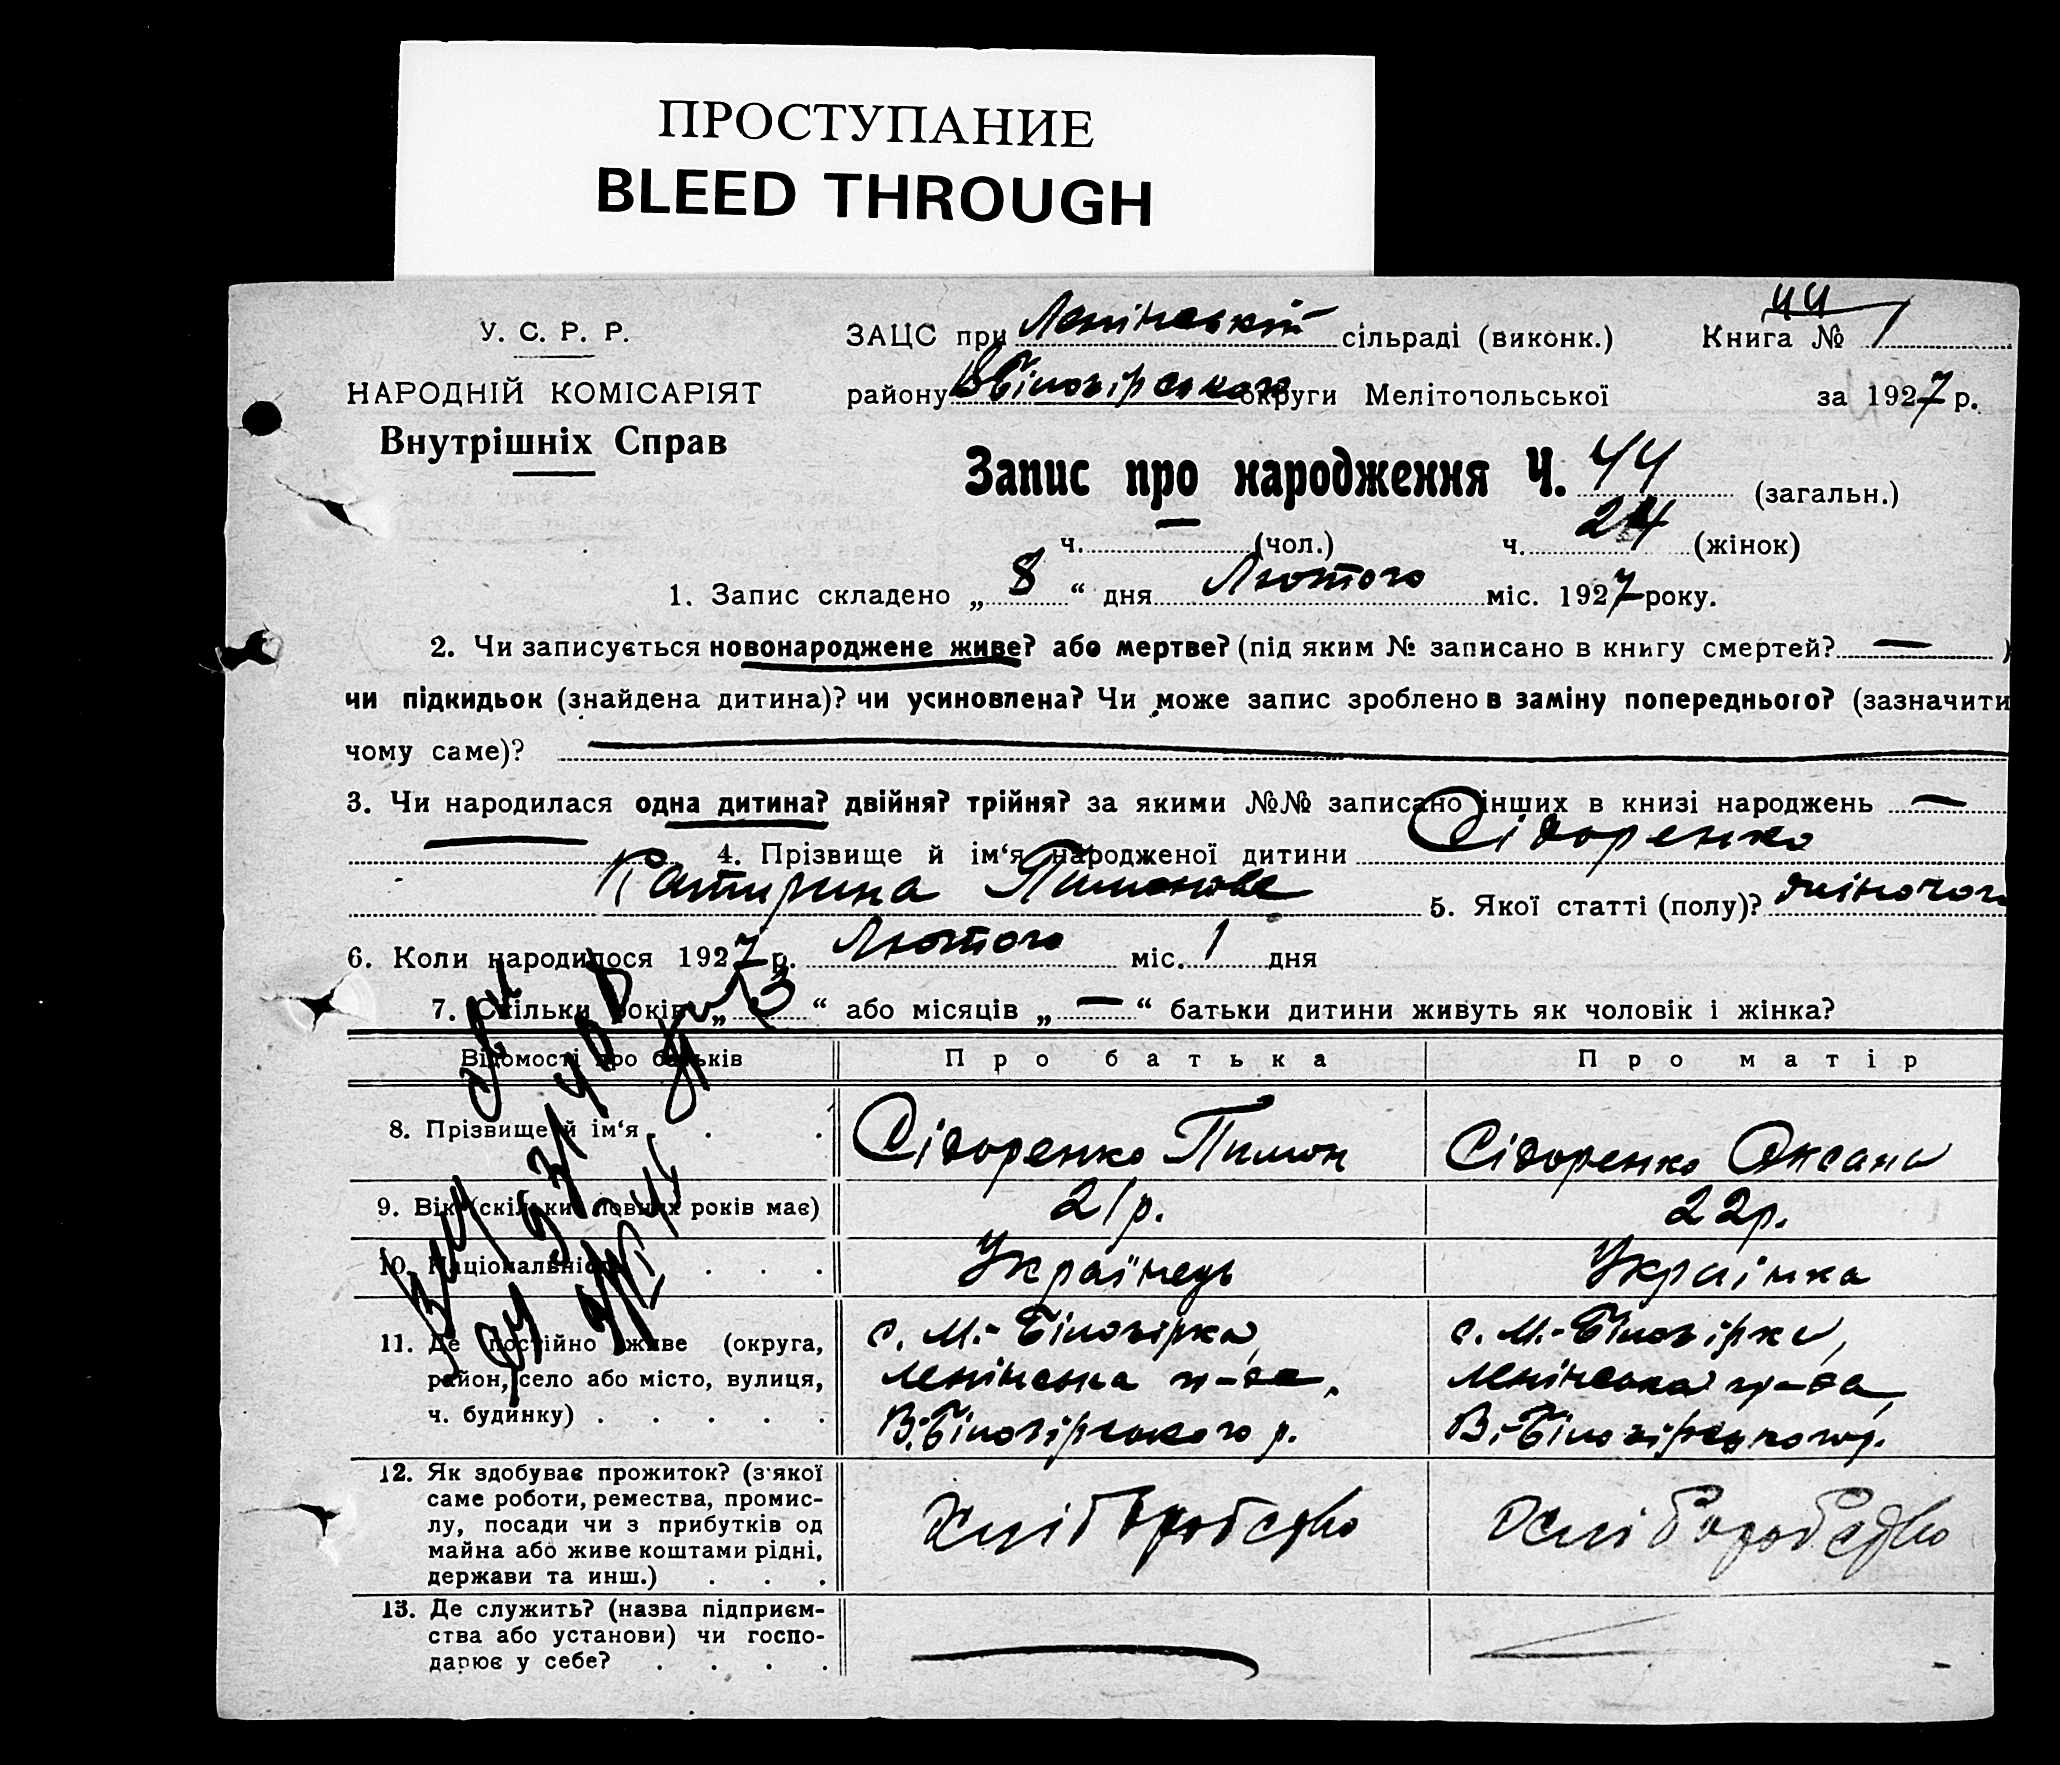 ПРОСТУПАНИЕ
BLEED THROUGH
44
У. С. Р. Р.
ЗАЦС при Ленінській сільраді (виконк.) Книга № 1
НАРОДНІЙ КОМІСАРІЯТ
району ВБілозірського округи Мелітопольської за 1927 р.
Внутрішніх Справ
Запис про народження Ч. 44 (загальн.)
ч. (чол.) ч. 24 (жінок)
1. Запис складено „ 8 “ дня Лютого міс. 1927 року.
2. Чи записується новонароджене живе? або мертве? (під яким № записано в книгу смертей? — )
чи підкидьок (знайдена дитина)? чи усиновлена? Чи може запис зроблено в заміну попереднього? (зазначити
чому саме)?
3. Чи народилася одна дитина? двійня? трійня? за якими №№ записано інших в книзі народжень —
— 4. Прізвище й ім‘я народженої дитини Сідоренко
Катирина Пимонова 5. Якої статті (полу)? жіночої
6. Коли народилося 1927 р. Лютого міс. 1 дня
7. Скільки років „ 3 “ або місяців „ — “ батьки дитини живуть як чоловік і жінка?
Відомості про батьків Про батька Про матір
8. Прізвище й ім‘я . . . Сідоренко Пимон Сідоренко Оксана
9. Вік (скільки повних років має) 21р. 22р.
10. Національність . . . Українець Українка
11. Де постійно живе (округа, с. М.-Білозірка, с. М.-Білозірка,
район, село або місто, вулиця, Ленінська Ленінська
ч. будинку) . . . . . В.-Білозірського р. В.-Білозірського р.
12. Як здобуває прожиток? (з якої
саме роботи, ремества, промис-
лу, посади чи з прибутків од Хліборобство Хліборобство
майна або живе коштами рідні,
держави та инш.) . . .
13. Де служить? (назва підприєм-
ства або установи) чи госпо-
дарює у себе? . . . .